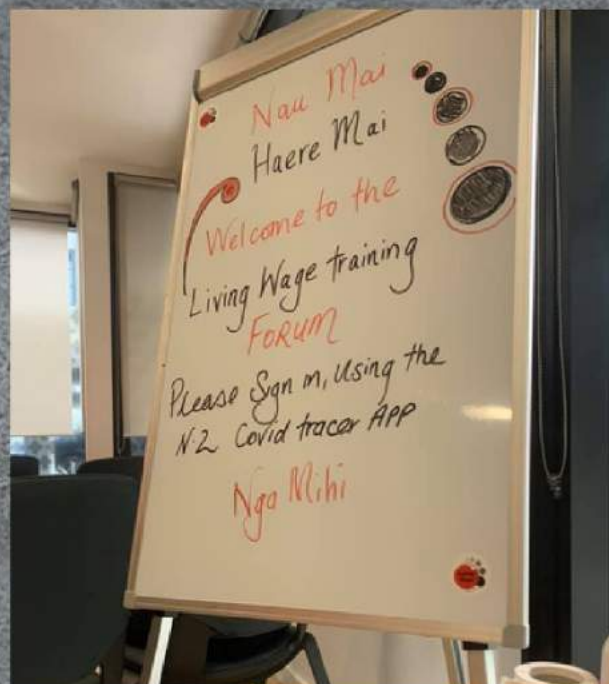 Nau Mai
Haere Mai
Welcome to the
Living Wage training
FORUM
Please Sign in, Using the
N.Z Covid tracer App
Nga Mihi